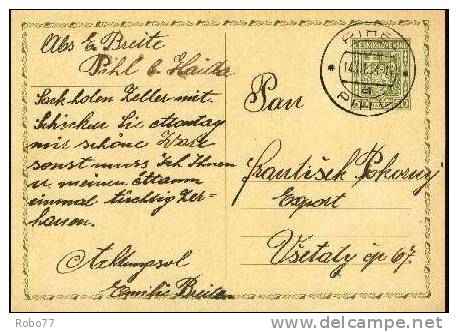 Abs E. Breite
Pihl b Haida
Sack holen Zeller mit.
Schicken Sie Montag
mir schöne Ware
sonst muss Ich Ihnen
u meinen
einmal tüchtig zer-
hauen.
Achtungsvol
Emilie Breite.
PIHL
ČESKOSLOVENSKO
Pan
František Pokorný
Export
Všetaty čp 67.
Robo77
delcampe.net